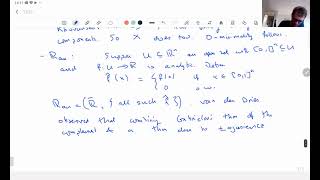 components. So X does too. O-minimality follows.
- R_an : Suppose U ⊆ R^n an open nd with [0,1]^n ⊆ U
and f: U → R is analytic. Define
f̃(x) = { f(x) if x ∈ [0,1]^n
0 o.w.
R_an = (R̄, { all such f̃ }) van den Dries
observed that combining Gabrielov's thm of the
complement & a thm due to Łojasiewicz